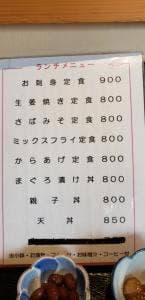 ランチメニュー
お刺身定食 900
生姜焼き定食 800
さばみそ定食 800
ミックスフライ定食 800
からあげ定食 800
まぐろ漬け丼 800
親子丼 800
天丼 850